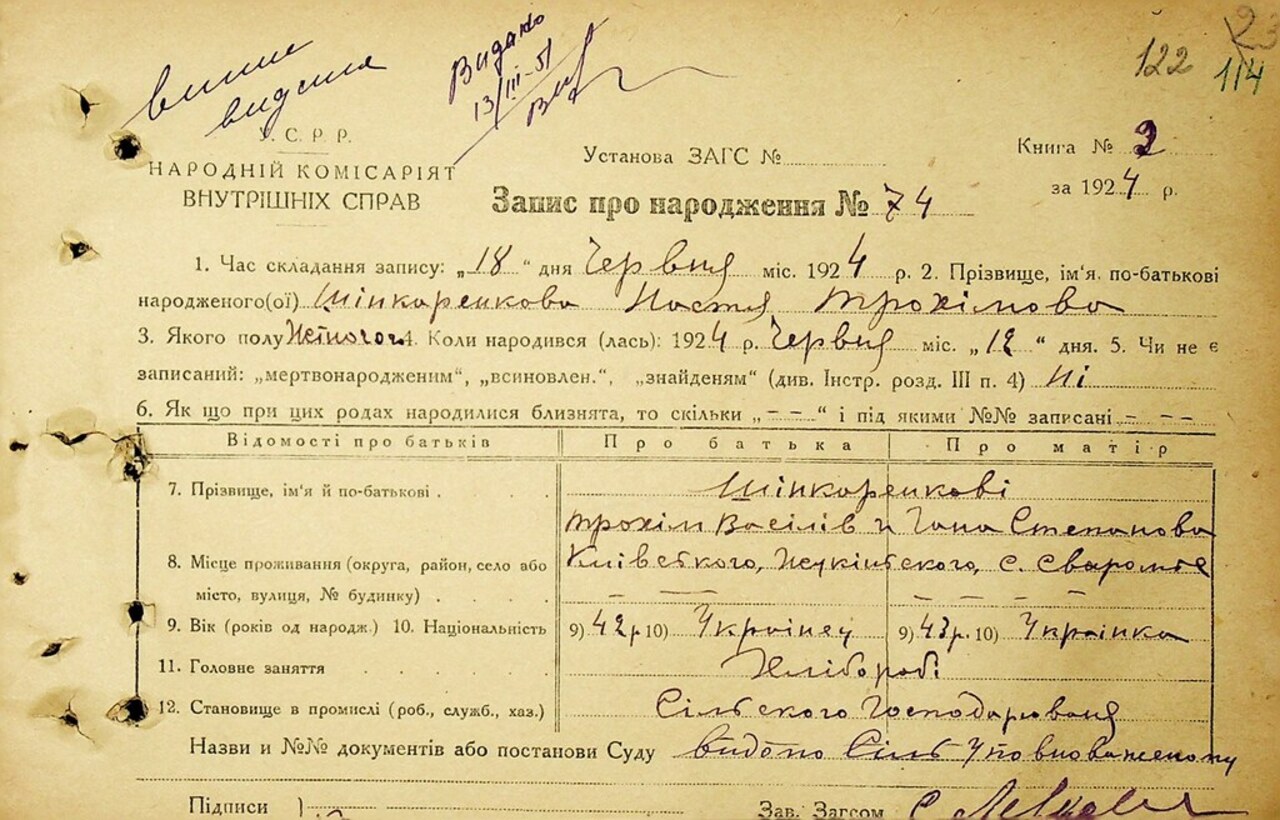 Видано
13/III-51
122
114
У. С. Р. Р.
НАРОДНІЙ КОМІСАРІЯТ
ВНУТРІШНІХ СПРАВ
Установа ЗАГС №
Книга № 2
за 1924 р.
Запис про народження № 74
1. Час складання запису: „18“ дня Червня міс. 1924 р. 2. Прізвище, ім'я. по-батькові
народженого(ої) Шінкаренкова Настя Трохімова
3. Якого полу Жіночого 4. Коли народився (лась): 1924 р. Червня міс. „12“ дня. 5. Чи не є
записаний: „мертвонародженим“, „всиновлен.“, „знайденям“ (див. Інстр. розд. III п. 4) Ні
6. Як що при цих родах народилися близнята, то скільки „– –“ і під якими №№ записані – – –
Відомості про батьків Про батька Про матір
7. Прізвище, ім'я й по-батькові Шінкаренкові
Трохім Васілів и Гана Степанова
8. Місце проживання (округа, район, село або Київського, с. Сваромье
місто, вулиця, № будинку)
9. Вік (років од народж.) 10. Національність 9) 42р. 10) Украінец 9) 43р. 10) Украінка
11. Головне заняття Хлібороби
12. Становище в промислі (роб., служб., хаз.) Сільского Господарованя
Назви и №№ документів або постанови Суду видано Сіль Уповноваженому
Підписи
Зав. Загсом